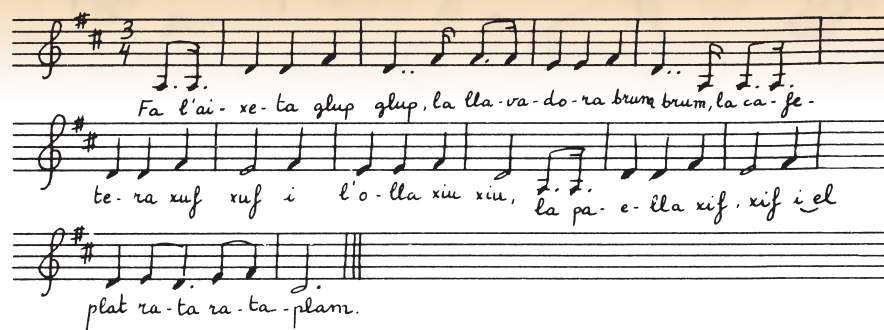 3
4
Fa l'ai-xe-ta glup glup, la lla-va-do-ra brum brum, la ca-fe-
te-ra xuf xuf i l'o-lla xiu xiu, la pa-e-lla xif, xif i el
plat ra-ta ra-ta-plam.